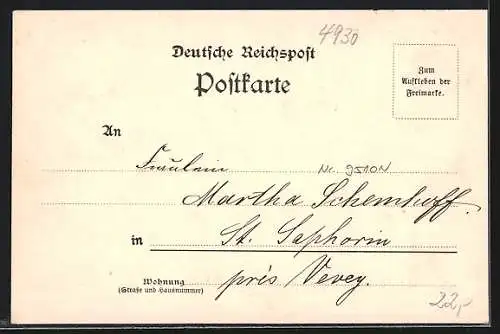 4930
Deutsche Reichspost
Postkarte
Zum
Aufkleben der
Freimarke.
An
Fräulein
Nr. 9510N
Martha Schemhoff.
in St. Saphorin
Wohnung près Vevey.
(Straße und Hausnummer)
22,-